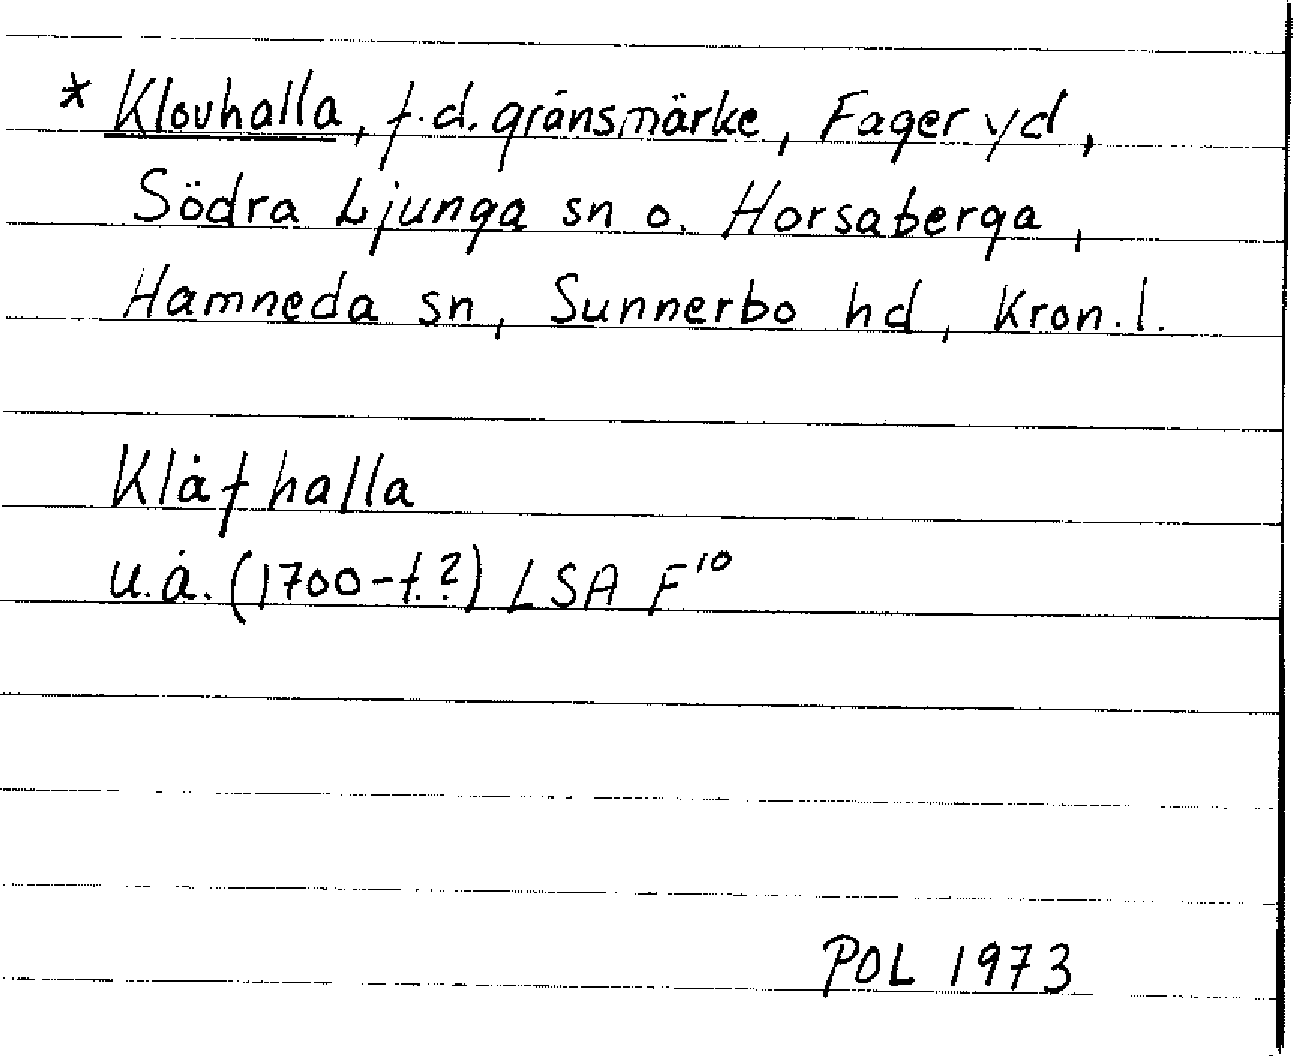 * Klovhalla, f.d. gränsmärke, Fageryd,
Södra Ljunga sn o. Horsaberga,
Hamneda sn, Sunnerbo hd, Kron. l.
Klåfhalla
u.å. (1700-t.?) LSA F¹⁰
POL 1973